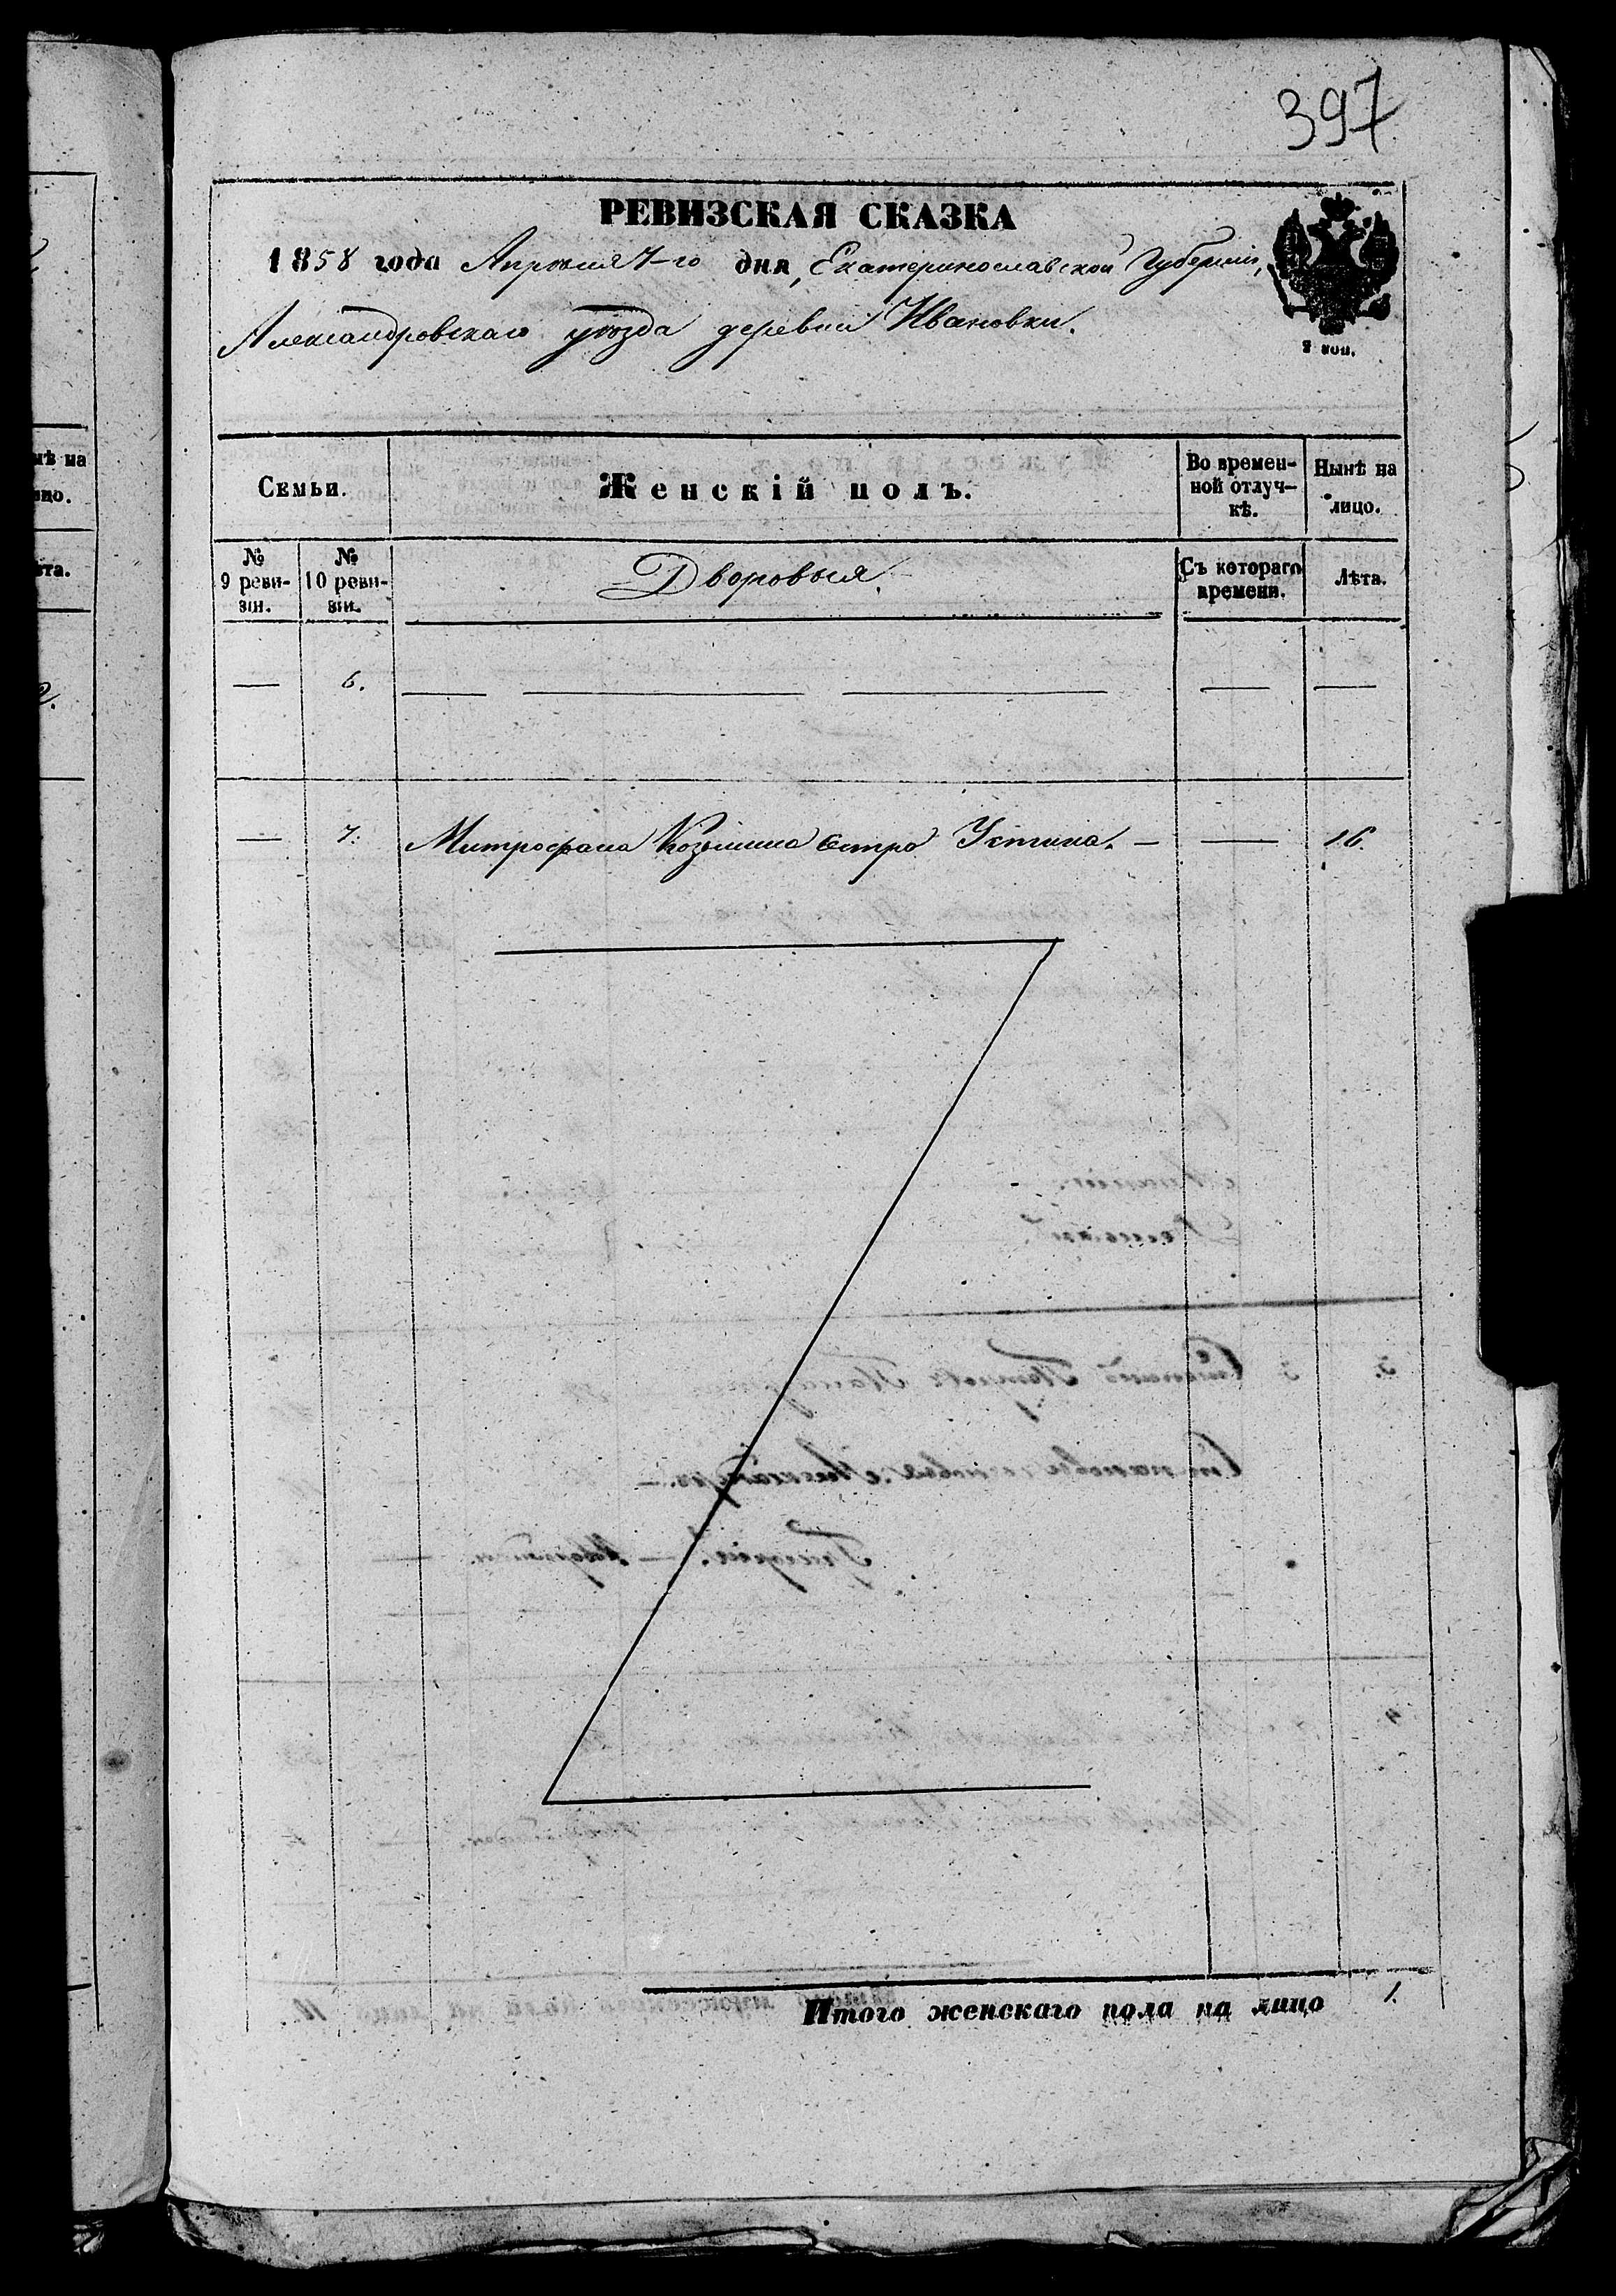 397
РЕВИЗСКАЯ СКАЗКА
1858 года Апрѣля 7-го дня, Екатеринославской Губерніи,
Александровскаго уѣзда деревни Ивановки.
2 коп.
Семьи. Женскій полъ. Во времен-ной отлуч-кѣ. Нынѣ на лицо.
№ 9 реви-зіи. № 10 реви-зіи. Дворовыя. Съ котораго времени. Лѣта.
— 6. — — — — —
— 7. Митрофана Козьмина сестра Устина. — — 16.
Итого женскаго пола на лицо 1.